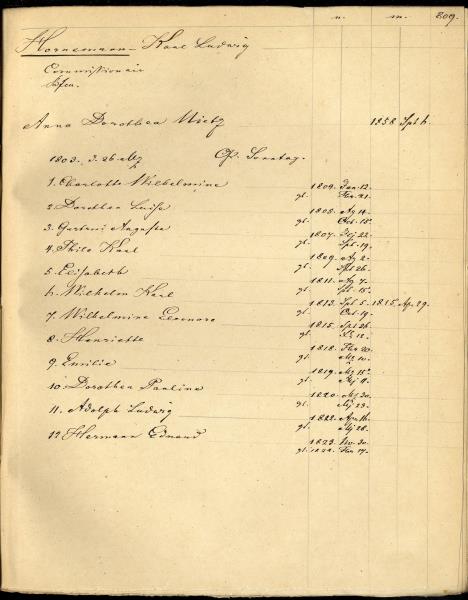 n. m. 209.
Hornemann Karl Ludwig
Commissionair
Anna Dorothea Mietz 1858. Spt 6.
1803. 3. 26 Mz Op. Sonntag.
1. Charlotte Wilhelmine
1804. Jan. 12.
gt. Feb. 21.
2. Dorothea Luise
1805. Ag 14.
gt. Oct. 18.
3. Gertrud Augusta
1807. Mj 22.
gt. Spt. 19.
4. Thilo Karl
1809. Ag 2.
gt. Spt 26.
5. Elisabeth
1811. Ag 7.
gt. Spt. 15.
6. Wilhelm Karl
1813. Spt 5. 1815. Ap. 29.
gt. Oct. 19.
7. Wilhelmine Eleonore
1815. Spt 26.
gt. 12.
8. Henriette
1818. Feb 20.
gt. Mz 10.
9. Emilie
1819. Mz 15.
gt. Mj 9.
10. Dorothea Pauline
1820. Mz 30.
gt. Mj 23.
11. Adolph Ludwig
1822. Apr. 16.
gt. Mj 28.
12. Hermann Eduard
1823. Nov. 30.
gt. 1824. Jan. 17.